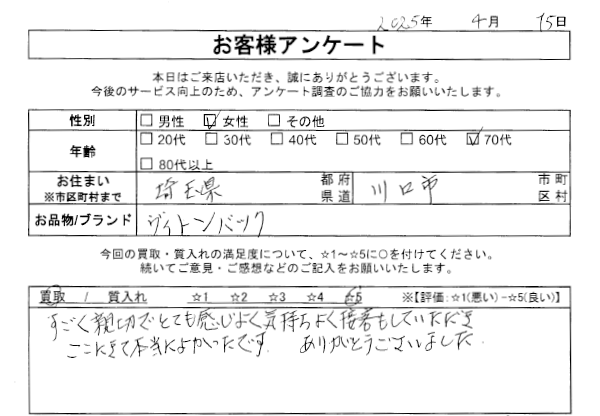 2025年 4月 15日
お客様アンケート
本日はご来店いただき、誠にありがとうございます。
今後のサービス向上のため、アンケート調査のご協力をお願いいたします。
性別 □男性 ☑女性 □その他
年齢 □20代 □30代 □40代 □50代 □60代 ☑70代
□80代以上
お住まい ※市区町村まで 埼玉県 都府県道 川口市 市町区村
お品物/ブランド ヴィトンバック
今回の買取・質入れの満足度について、☆1～☆5に○を付けてください。
続いてご意見・ご感想などのご記入をお願いいたします。
買取 / 質入れ ☆1 ☆2 ☆3 ☆4 ☆5 ※【評価:☆1(悪い)－☆5(良い)】
すごく親切でとても感じよく気持ちよく接客もしていただき
ここにきて本当によかったです。 ありがとうございました。